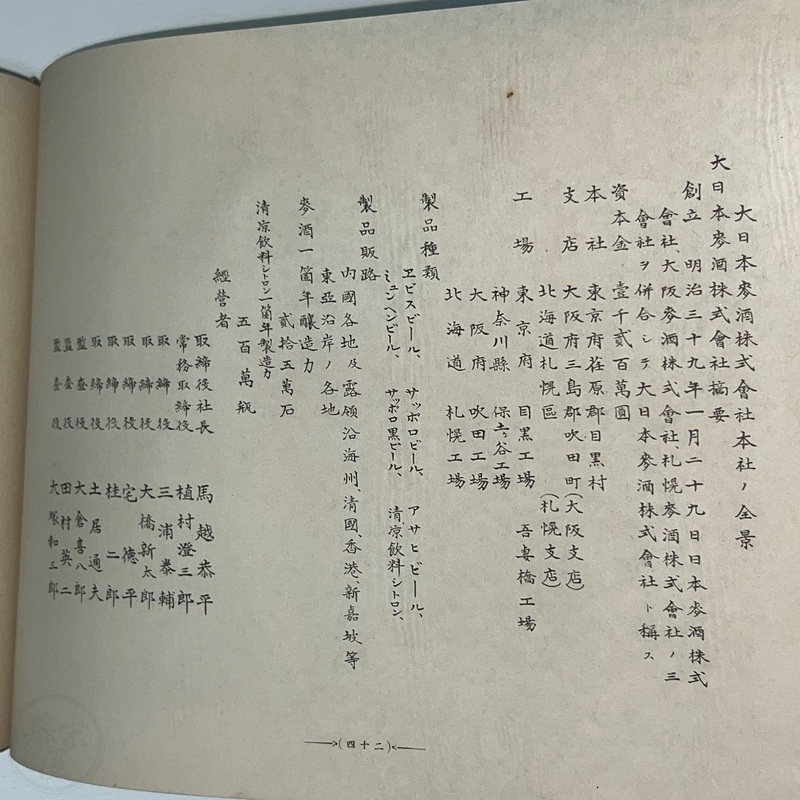 大日本麥酒株式會社本社ノ全景
大日本麥酒株式會社摘要
創立 明治三十九年一月二十九日日本麥酒株式
會社、大阪麥酒株式會社、札幌麥酒株式會社ノ三
會社ヲ併合シテ大日本麥酒株式會社ト稱ス
資本金 壹千貳百萬圓
本社 東京府荏原郡目黑村
支店 大阪府三島郡吹田町(大阪支店)
北海道札幌區 (札幌支店)
工場 東京府 目黑工場 吾妻橋工場
神奈川縣 保土ヶ谷工場
大阪府 吹田工場
北海道 札幌工場
製品種類 ヱビスビール、 サッポロビール、 アサヒビール、
ミュンヘンビール、 サッポロ黑ビール、 清凉飲料シトロン、
製品販路 內國各地及露領沿海州、清國、香港、新嘉坡等
東亞沿岸ノ各地
麥酒一箇年釀造力
貳拾五萬石
清凉飲料シトロン一箇年製造力
五百萬瓶
經營者 取締役社長 馬越恭平
常務取締役 植村澄三郎
取締役 三浦泰輔
取締役 大橋新太郎
取締役 宅德平
取締役 桂二郎
取締役 土居通夫
監查役 大倉喜八郎
監查役 田村英二
監查役 大塚和三郎
(四十二)